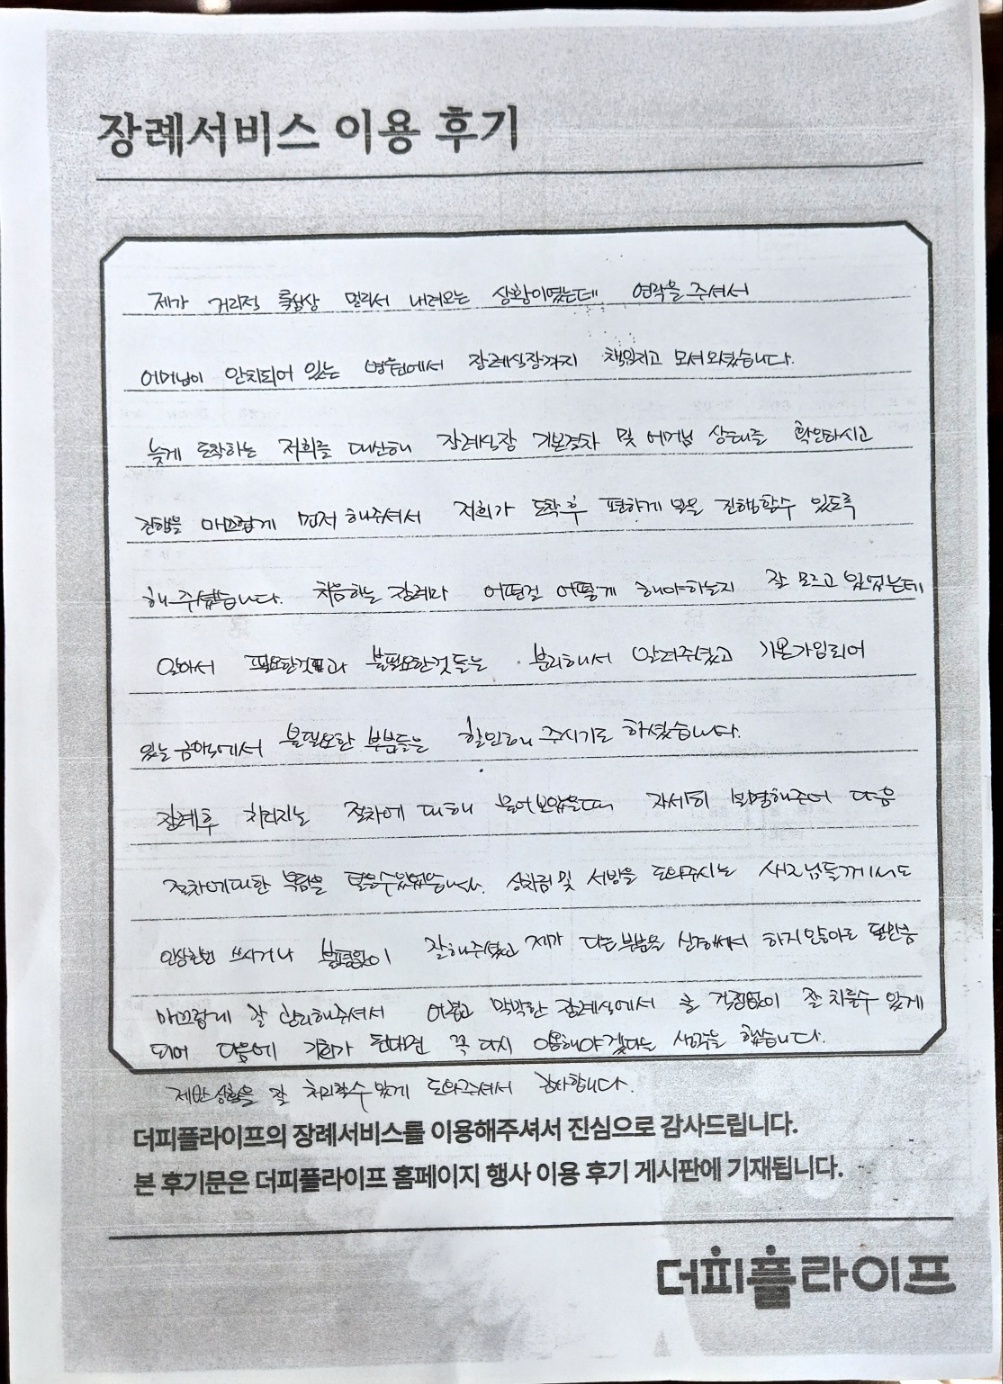 장례서비스 이용 후기
제가 거리적 특성상 멀리서 내려오는 상황이였는데 연락을 주셔서
어머님이 안치되어 있는 병원에서 장례식장까지 책임지고 모셔와주셨습니다.
늦게 도착하는 저희를 대신해 장례식장 기본절차 및 어머님 상태를 확인하시고
진행을 매끄럽게 먼저 해주셔서 저희가 도착후 편하게 일을 진행할수 있도록
해주셨습니다. 처음하는 장례라 어떤걸 어떻게 해야하는지 잘 모르고 있었는데
알아서 필요한것과 불필요한것들을 분리해서 알려주셨고 기존가입되어
있는 금액에서 불필요한 부분들은 할인해 주시기로 하셨습니다.
장례후 치러지는 절차에 대해 물어보았을때 자세히 설명해주어 다음
절차에대한 부담을 덜을수있었습니다. 상차림 및 서빙을 도와주시는 새끼님들께서도
인상한번 쓰시거나 불평없이 잘해주셨고 제가 다른부분을 신경써서 하지않아도 될만큼
매끄럽게 잘 관리해주셔서 어렵고 막막한 장례식에서 큰 걱정없이 잘 치룰수 있게
되어 다음에 기회가 된다면 꼭 다시 이용해야 겠다는 생각을 했습니다.
제반상황을 잘 처리할수 있게 도와주셔서 감사합니다.
더피플라이프의 장례서비스를 이용해주셔서 진심으로 감사드립니다.
본 후기문은 더피플라이프 홈페이지 행사 이용 후기 게시판에 기재됩니다.
더피플라이프